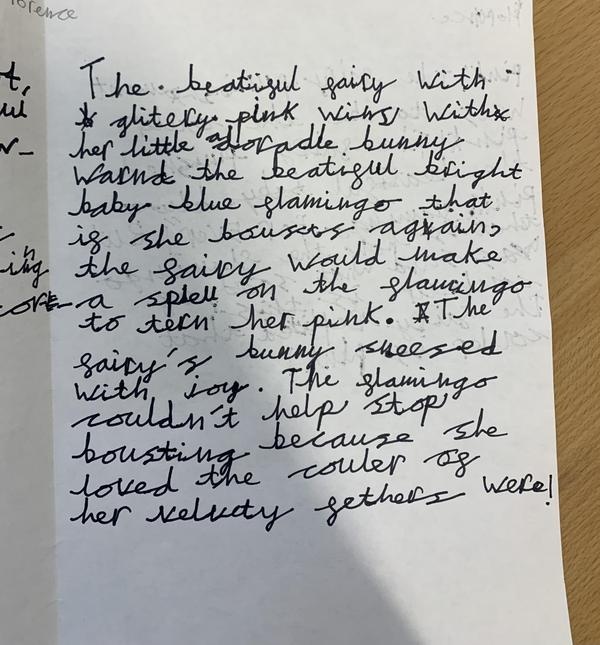 Florence
The beatiful fairy with
glitery pink wins with
her little adoradle bunny
warnd the beatiful bright
baby blue flamingo that
if she bousts again,
the fairy would make
a spell on the flamingo
to tern her pink. The
fairy's bunny sneesed
with joy. The flamingo
couldn't help stop
bousting because she
loved the couler of
her velvety fethers were!